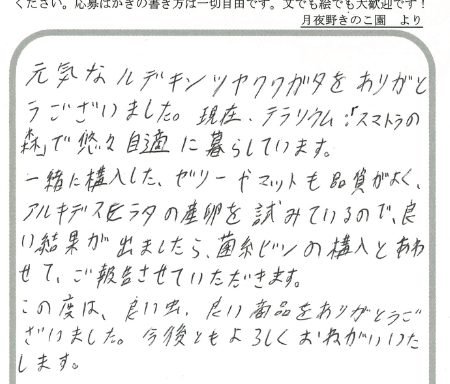 ください。応募はがきの書き方は一切自由です。文でも絵でも大歓迎です！
月夜野きのこ園　より
元気なルデキンツヤクワガタをありがと
うございました。現在、テラリウム:「スマトラの
森」で悠々自適に暮らしています。
一緒に構入した、ゼリーやマットも品質がよく、
アルキデスヒラタの産卵を試みているので、良
い結果が出ましたら、菌糸ビンの構入とあわ
せて、ご報告させていただきます。
この度は、良い虫、良い商品をありがとうご
ざいました。今後ともよろしくおねがいいた
します。